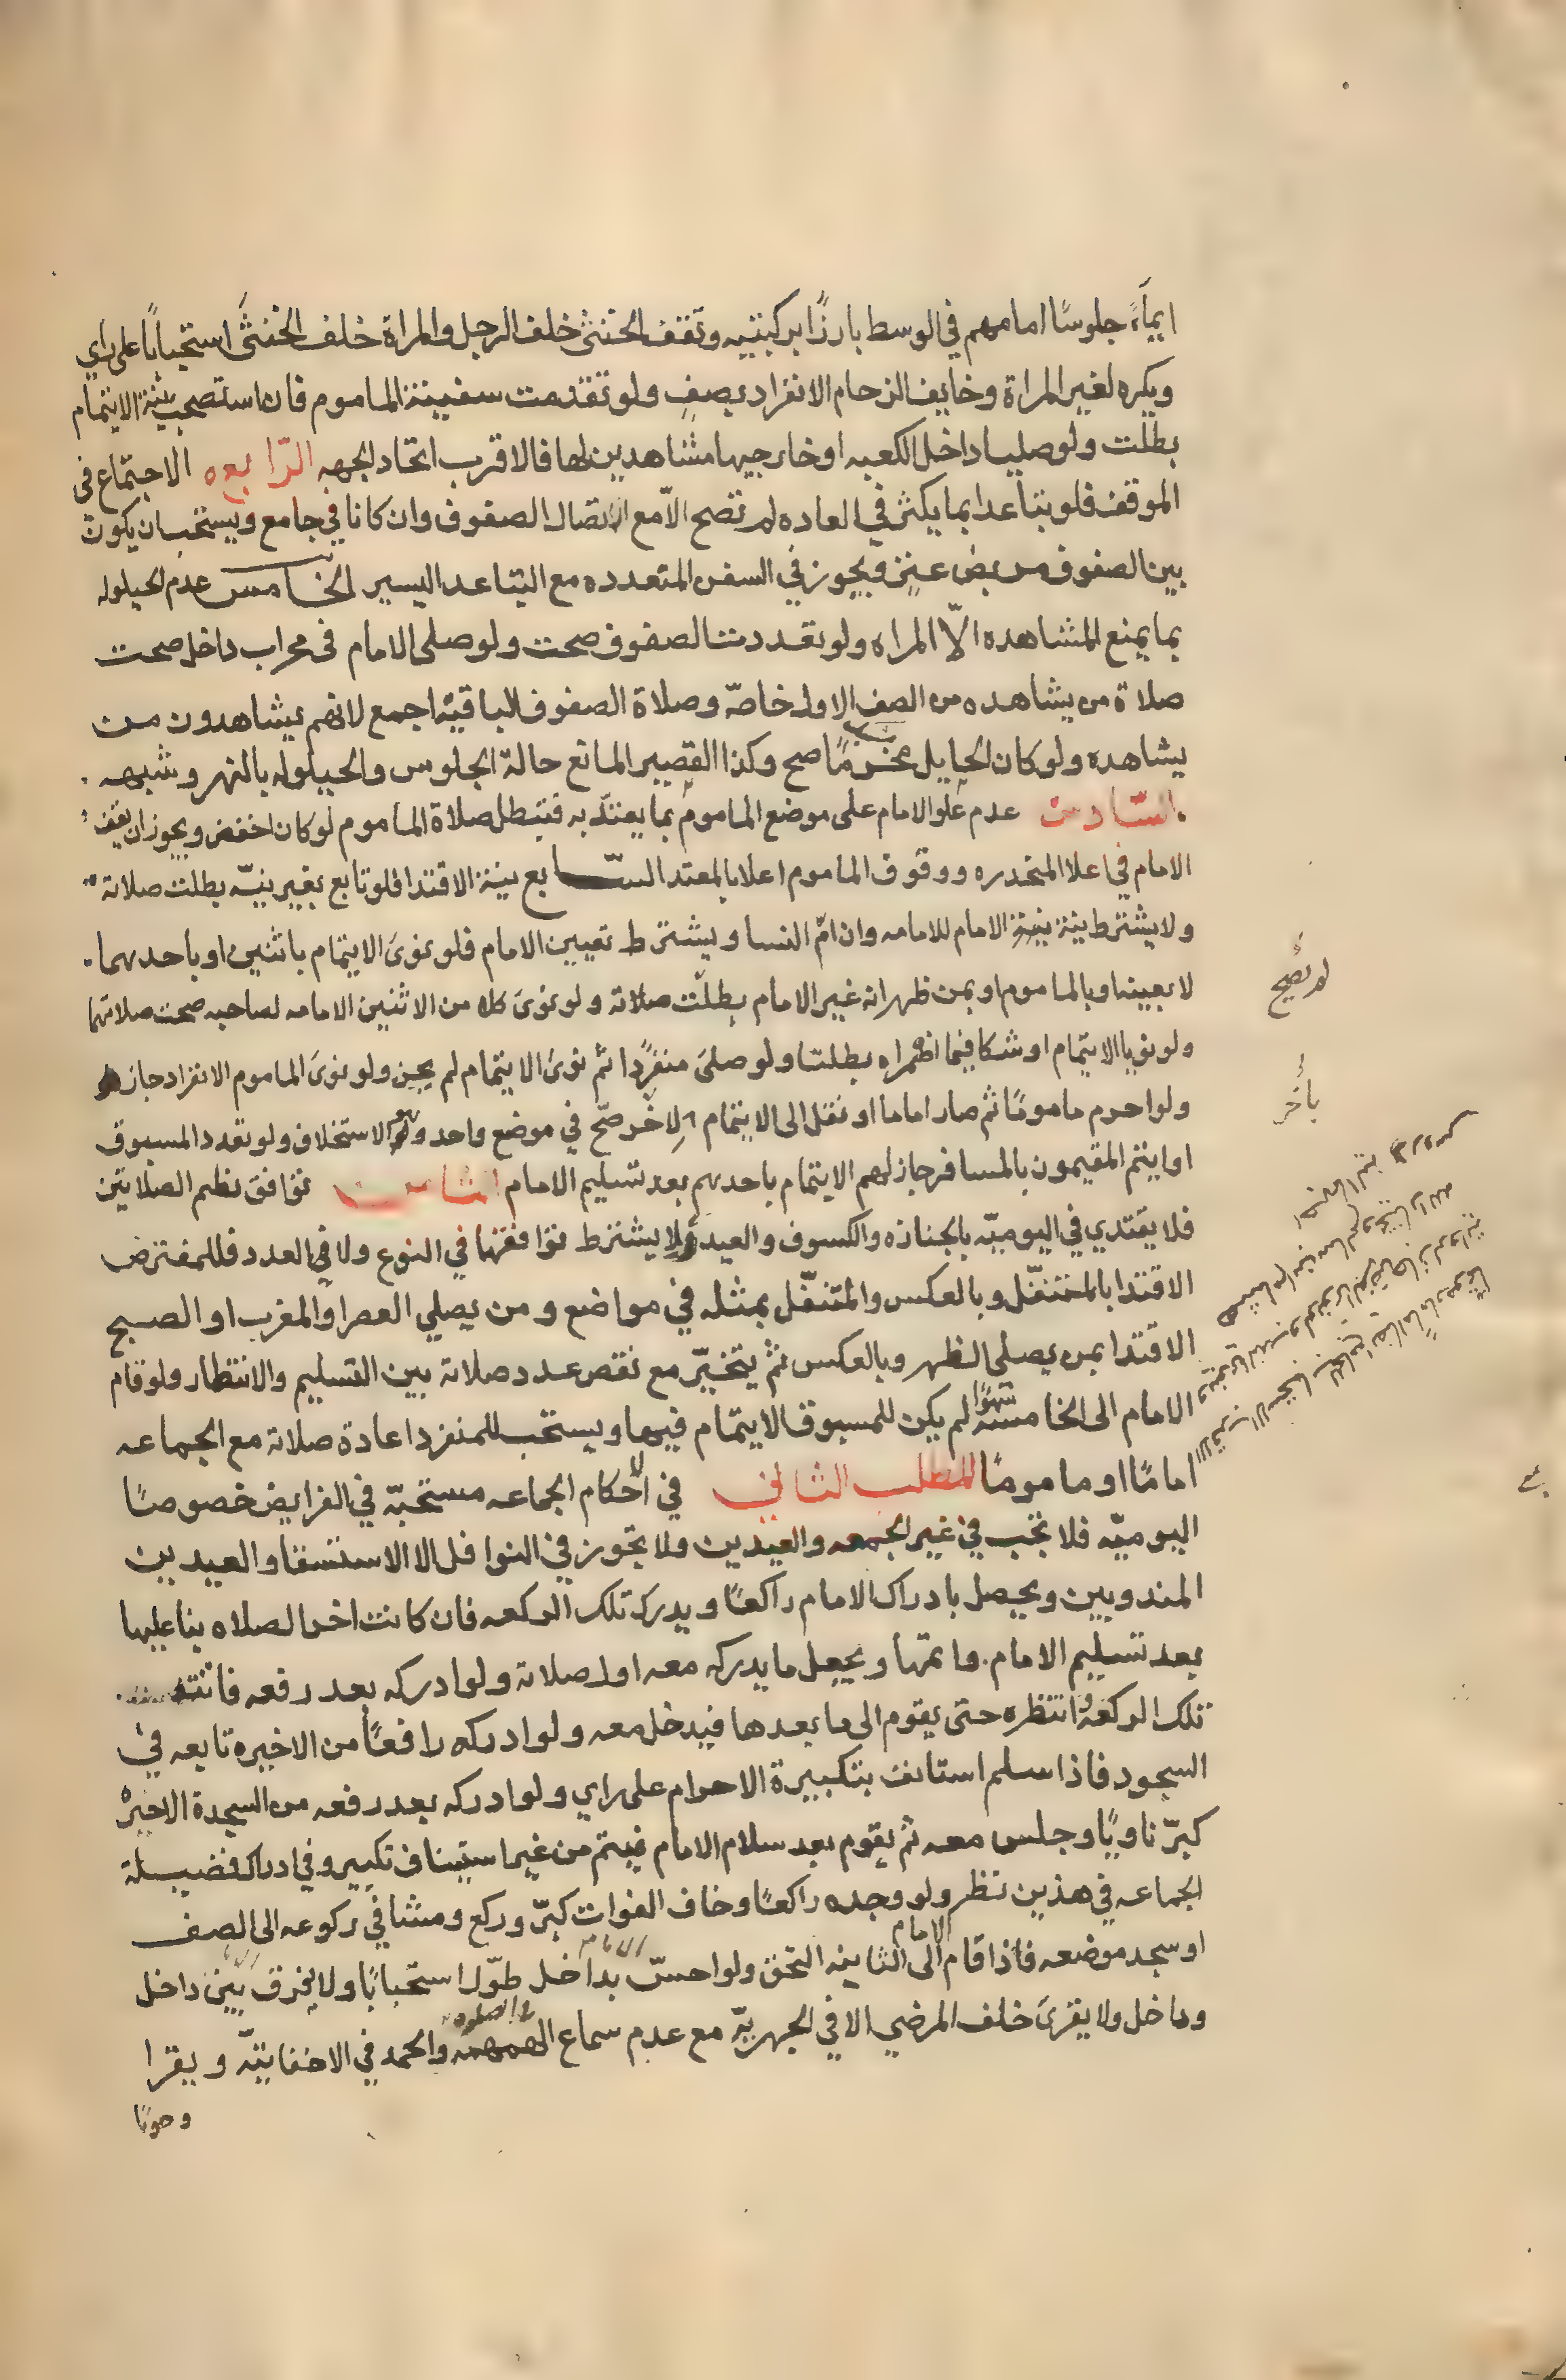 ايماءً جلوسًا امامهم في الوسط بارزًا بركبتيه وتقف الخنثى خلف الرجل والمراة خلف الخنثى استحبابًا على راي
ويكره لغير المراة وخايف الزحام الانفراد بصف ولو تقدمت سفينة الماموم فان استصحب نية الايتمام
بطلت ولو صليا داخل الكعبه او خارجيها مشاهدين لها فالاقرب اتحاد الجهه الرابع الاجتماع في
الموقف فلو تباعدا بما يكثر في العاده لم تصح الّا مع اتصال الصفوف وان كانا في جامع ويستحب ان يكون
بين الصفوف مربض عنز ويجوز في السفن المتعدده مع التباعد اليسير الخامس عدم الحيلوله
بما يمنع المشاهده الّا المراه ولو تعددت الصفوف صحت ولو صلى الامام في محراب داخل صحت
صلاة من يشاهده من الصف الاول خاصّه وصلاة الصفوف الباقية اجمع لانهم يشاهدون من
يشاهده ولو كان الحايل مخرمًا صح وكذا القصير المانع حالة الجلوس والحيلوله بالنهر وشبهه
السّادس عدم علو الامام على موضع الماموم بما يعتدّ به فتبطل صلاة الماموم لو كان اخفض ويجوز ان يقف
الامام في اعلا المنحدره ووقوف الماموم اعلا بالمعتد السّابع نية الاقتدا فلو تابع بغير نيّه بطلت صلاته
ولا يشترط نية الامام للامامه وان امّ النسا ويشترط تعيين الامام فلو نوى الايتمام باثنين او باحدهما
لا بعينه او بالماموم او بمن ظهر انه غير الامام بطلت صلاته ولو نوى كل من الاثنين الامامه لصاحبه صحت صلاتهما
ولو نويا الايتمام او شكا فيما اضمراه بطلتا ولو صلى منفردًا ثم نوى الايتمام لم يجز ولو نوى الماموم الانفراد جاز
ولو احرم مامومًا ثم صار اماما او نقل الى الايتمام بآخر صحّ في موضع واحد وهو الاستخلاف ولو تعدد المسبوق
او ايتم المقيمون بالمسافر جاز لهم الايتمام باحدهم بعد تسليم الامام الثامن توافق نظم الصلاتين
فلا يقتدي في اليوميّه بالجنازه والكسوف والعيد ولا يشترط توافقهما في النوع ولا في العدد فللمفترض
الاقتدا بالمتنفّل وبالعكس والمتنفّل بمثله في مواضع ومن يصلي العصر او المغرب او الصبح
الاقتدا بمن يصلي الظهر وبالعكس ثم يتخيّر مع نقص عدد صلاته بين التسليم والانتظار ولو قام
الامام الى الخامسة سهوًا لم يكن للمسبوق الايتمام فيها ويستحب للمنفرد اعادة صلاته مع الجماعه
امامًا او مامومًا المطلب الثاني في الاحكام الجماعه مستحبّة في الفرايض خصوصًا
اليوميّه فلا تجب في غير الجمعه والعيدين ولا تجوز في النوافل الا الاستسقا والعيدين
المندوبين ويحصل بادراك الامام راكعًا ويدرك تلك الركعه فان كانت اخر الصلاه بنا عليها
بعد تسليم الامام واتمها ويجعل ما يدركه معه اول صلاته ولو ادركه بعد رفعه فاتته
تلك الركعة وانتظره حتى يقوم الى ما بعدها فيدخل معه ولو ادركه رافعًا من الاخيره تابعه في
السجود فاذا سلم استانف بتكبيرة الاحرام على راي ولو ادركه بعد رفعه من السجدة الاخيرة
كبرّ ناويًا وجلس معه ثم يقوم بعد سلام الامام فيتم من غير استيناف تكبير وفي ادراك فضيلة
الجماعه في هذين نظر ولو وجده راكعًا وخاف الفوات كبرّ وركع ومشا في ركوعه الى الصف
او سجد موضعه فاذا قام الامام الى الثانيه التحق ولو احسّ الامام بداخل طوّل استحبابًا ولا يفرق بين داخل
وداخل ولا يقرى خلف المرضي الا في الجهريّه مع عدم سماع الهمهمه والحمد في الاخفاتيّه ويقرا
وجوبًا
لم تصح
بآخر